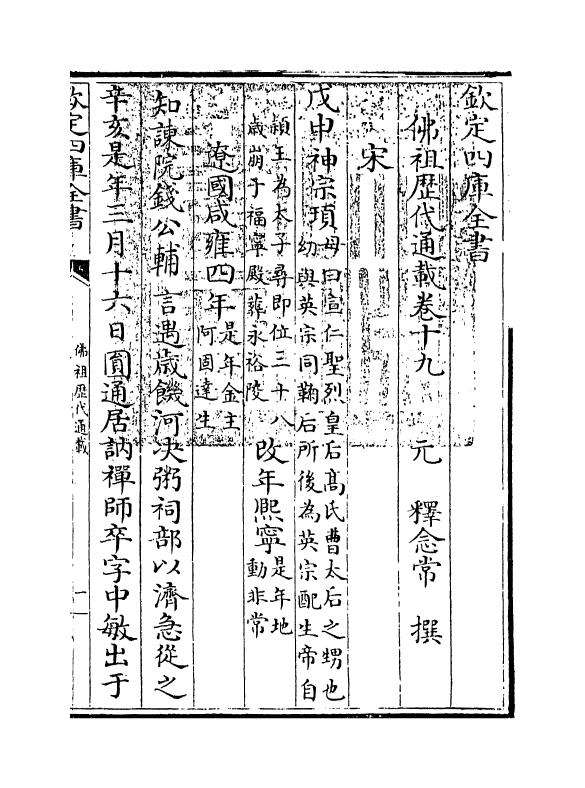 欽定四庫全書
佛祖歴代通載卷十九　元　釋念常　撰
宋
戊申神宗頊母曰宣仁聖烈皇后髙氏曹太后之甥也
幼與英宗同鞠后所後為英宗配生帝自
頴王為太子尋即位三十八
歳崩于福寧殿葬永裕陵
改年熈寧是年地
動非常
遼國咸雍四年是年金主
阿固達生
知諫院錢公輔言遇歳饑河决粥祠部以濟急從之
辛亥是年三月十六日圎通居訥禪師卒字中敏出于
欽定四庫全書
佛祖歴代通載
一